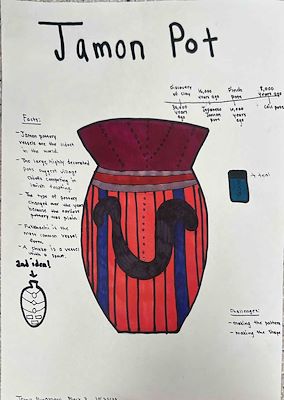 Jamon Pot
Discovery of clay
16,000 years ago
Pinch pots
8,000 years ago
years ago
Japanese Jamon pot
years ago
Coil pots
Facts:
- Jamon pottery
vessels are the oldest
in the world.
- The large, highly decorated
pots suggest village
chiefs competing in
lavish feasting.
- The type of pottery
changed over the years
because the earliest
pottery was plain.
- Fukabachi is the
most common vessel
form.
- A is a vessel
with a spout.
2nd idea!
Challenges:
- making the pattern
- making the shape